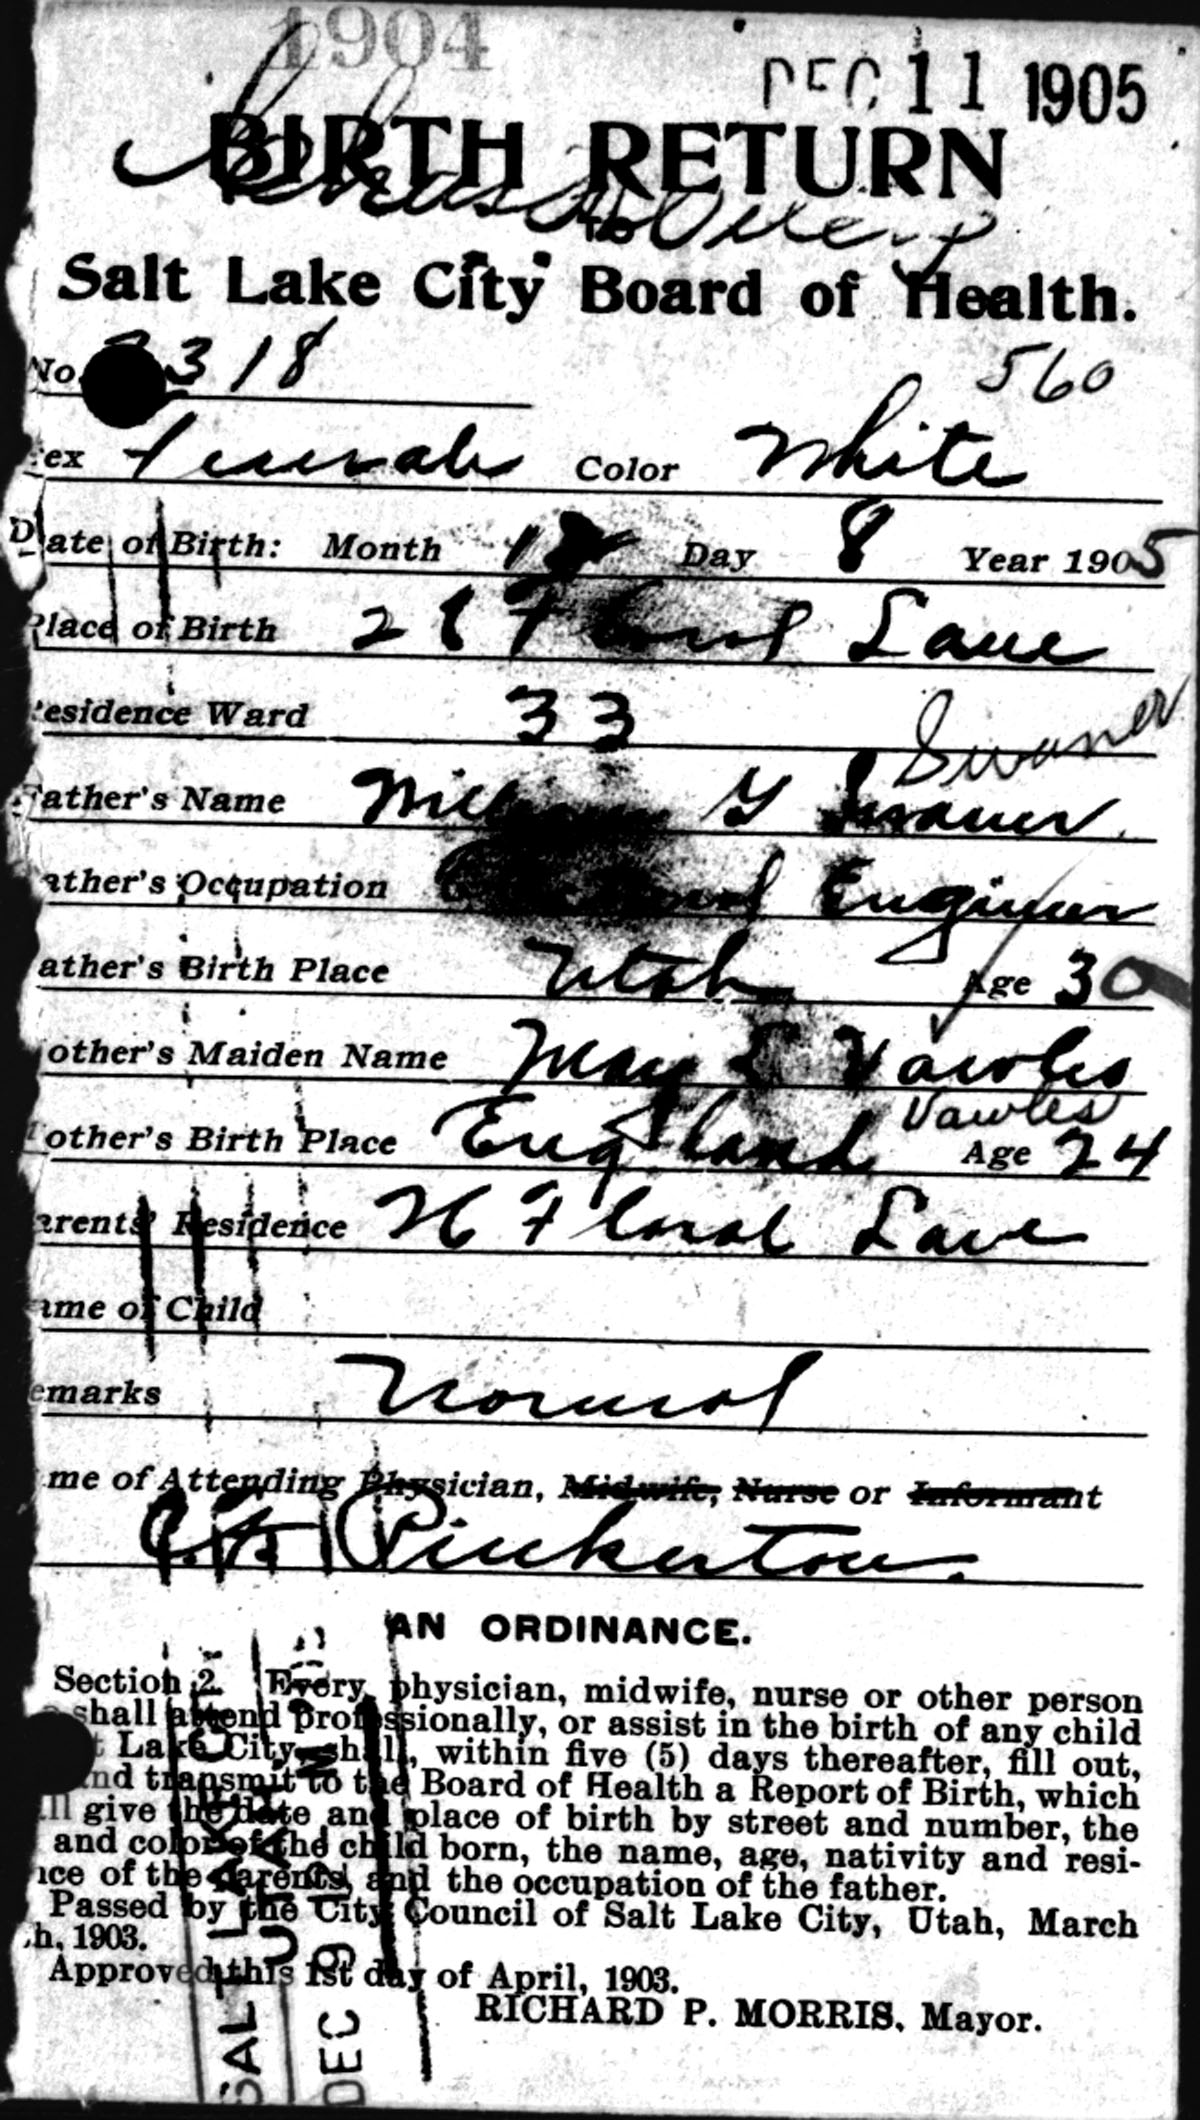 1904
DEC 11 1905
BIRTH RETURN
TO
Salt Lake City Board of Health.
No. 318
560
ex Female Color White
Date of Birth: Month 12 Day 8 Year 1905
Place of Birth 28 Floral Lane
esidence Ward 33
Swaner
Father's Name G Swaner
ather's Occupation Engineer
ather's Birth Place Utah Age 30
other's Maiden Name May E Vawles
Vawles
other's Birth Place England Age 24
arents' Residence 26 Floral Lane
ame of Child
emarks Normal
me of Attending Physician, Midwife, Nurse or Informant
Pinkerton.
AN ORDINANCE.
Section 2. Every physician, midwife, nurse or other person
shall attend professionally, or assist in the birth of any child
t Lake City, shall, within five (5) days thereafter, fill out,
nd transmit to the Board of Health a Report of Birth, which
ll give the date and place of birth by street and number, the
and color of the child born, the name, age, nativity and resi-
nce of the parents, and the occupation of the father.
Passed by the City Council of Salt Lake City, Utah, March
h, 1903.
Approved this 1st day of April, 1903.
RICHARD P. MORRIS, Mayor.
SALT LAKE CITY
UTAH
DEC 9